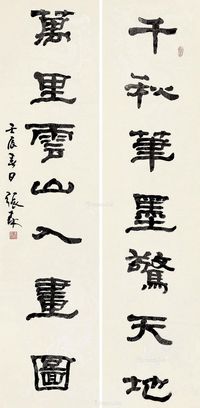 千秋筆墨驚天地
萬里雲山入畫圖
壬辰春日 張森